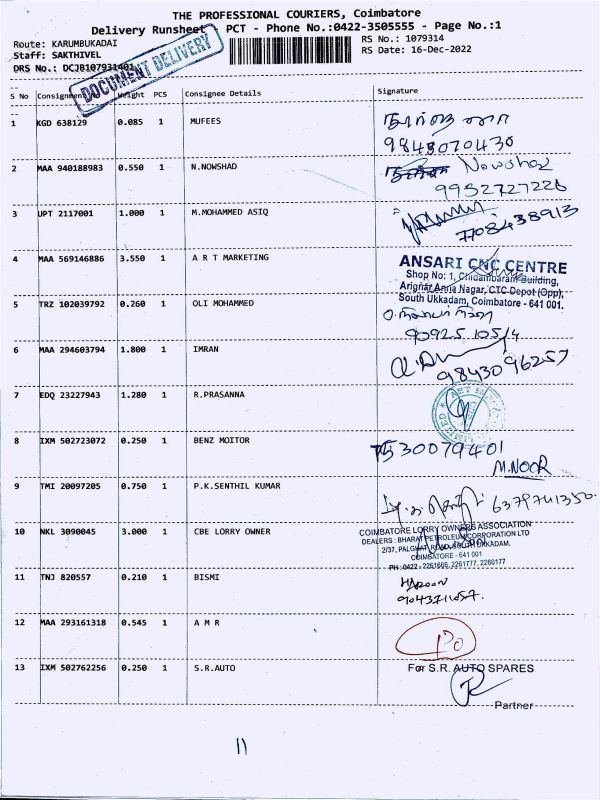 THE PROFESSIONAL COURIERS, Coimbatore
Delivery Runsheet PCT - Phone No.:0422-3505555 - Page No.:1
Route: KARUMBUKADAI
RS No.: 1079314
Staff: SAKTHIVEL
RS Date: 16-Dec-2022
DRS No.: DCJ0107931401
DOCUMENT DELIVERY
S No Consignment No Weight PCS Consignee Details Signature
1 KGD 638129 0.085 1 MUFEES
9843070430
2 MAA 940188983 0.550 1 N.NOWSHAD
Nowshad
9952727226
3 UPT 2117001 1.000 1 M.MOHAMMED ASIQ
7708438913
4 MAA 569146886 3.550 1 A R T MARKETING
ANSARI CNC CENTRE
Shop No: 1, Chidambaram Building,
Arignar Anna Nagar, CTC Depot (Opp),
South Ukkadam, Coimbatore - 641 001.
5 TRZ 102039792 0.260 1 OLI MOHAMMED
90925 10514
6 MAA 294603794 1.800 1 IMRAN
9843096257
7 EDQ 23227943 1.280 1 R.PRASANNA
8 IXM 502723072 0.250 1 BENZ MOITOR
7530079401
M.NOOR
9 TMI 20097205 0.750 1 P.K.SENTHIL KUMAR
6379741350
10 NKL 3090045 3.000 1 CBE LORRY OWNER
COIMBATORE LORRY OWNERS ASSOCIATION
DEALERS : BHARAT PETROLEUM CORPORATION LTD
2/37, PALGHAT ROAD, SOUTH UKKADAM,
COIMBATORE - 641 001
PH : 0422 - 2261666, 2261777, 2260177
11 TNJ 820557 0.210 1 BISMI
HAROON
9043711657.
12 MAA 293161318 0.545 1 A M R
PO
13 IXM 502762256 0.250 1 S.R.AUTO
For S.R. AUTO SPARES
Partner
11